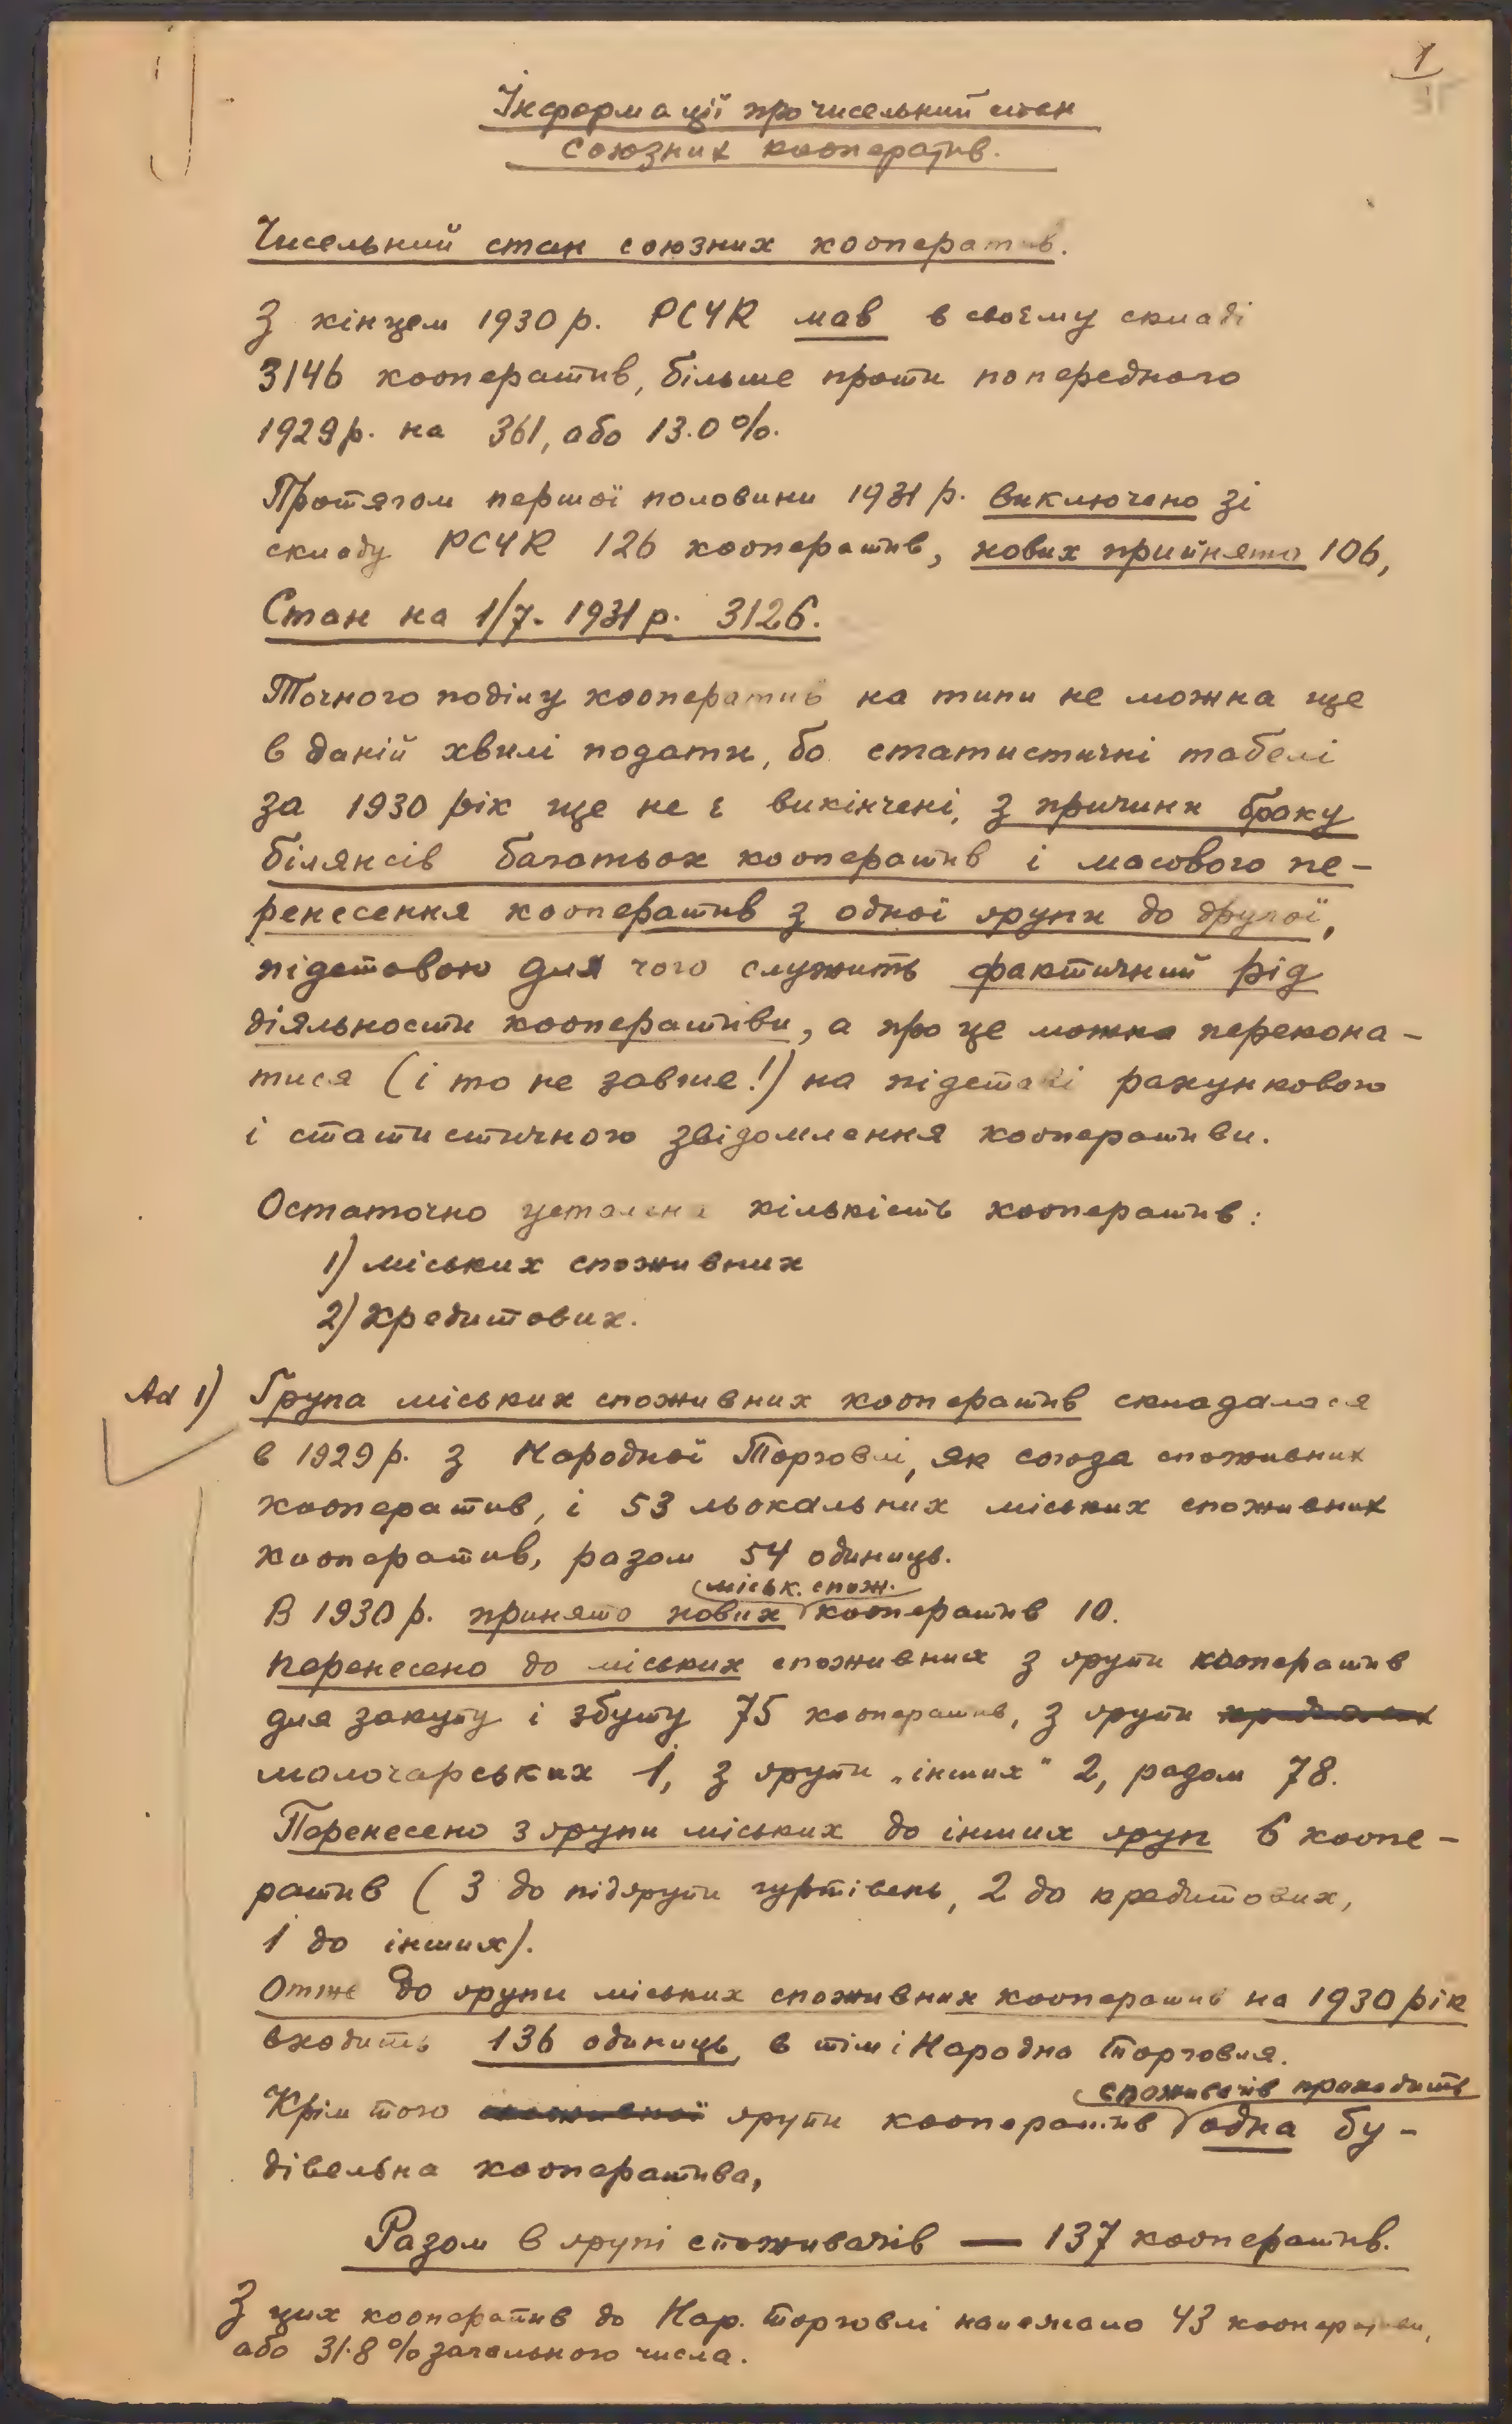 1
Інформації про чисельний стан
союзних кооператив.
Чисельний стан союзних кооператив.
З кінцем 1930 р. РСУК мав в своєму складі
3146 кооператив, більше проти попереднього
1929 р. на 361, або 13.0%.
Протягом першої половини 1931 р. виключено зі
складу РСУК 126 кооператив, нових прийнято 106,
Стан на 1/7. 1931 р. 3126.
Точного поділу кооператив на типи не можна ще
в даній хвилі подати, бо статистичні табелі
за 1930 рік ще не є викінчені, з причини браку
білянсів багатьох кооператив і масового пе-
ренесення кооператив з одної групи до другої,
підставою для чого служить фактичний рід
діяльности кооперативи, а про це можна перекона-
тися (і то не завше!) на підставі рахункового
і статистичного звідомлення кооперативи.
Остаточно усталена кількість кооператив:
1) міських споживних
2) кредитових.
Ad 1) Група міських споживних кооператив складалася
в 1929 р. з Народної Торговлі, як союза споживних
кооператив, і 53 льокальних міських споживних
кооператив, разом 54 одиниць.
міськ. спож.
В 1930 р. принято нових кооператив 10.
Перенесено до міських споживних з групи кооператив
для закупу і збуту 75 кооператив, з групи
молочарських 1, з групи „інших" 2, радом 78.
Перенесено з групи міських до інших груп 6 коопе-
ратив (3 до підгрупи гуртівень, 2 до кредитових,
1 до інших).
Отже до групи міських споживних кооператив на 1930 рік
входить 136 одиниць, в тім і Народна Торговля.
споживачів приходить
Крім того групи кооператив одна бу-
дівельна кооператива,
Разом в групі споживачів — 137 кооператив.
З цих кооператив до Нар. Торговлі належало 43 кооперативи,
або 31.8% загального числа.